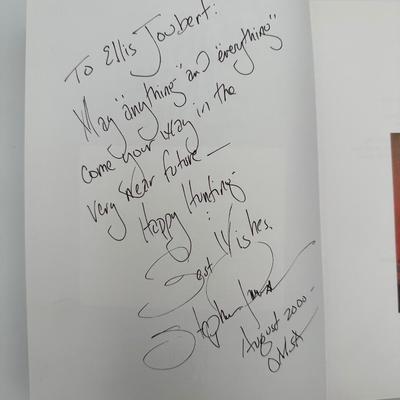 To Ellis Joubert:
May "anything" and "everything"
come your way in the
very near future —
Happy Hunting.
Best Wishes,
Stephen
August 2000 -
OMSA